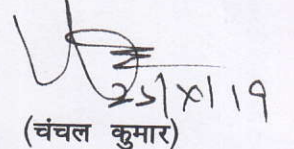 25/XI/19
(चंचल कुमार)